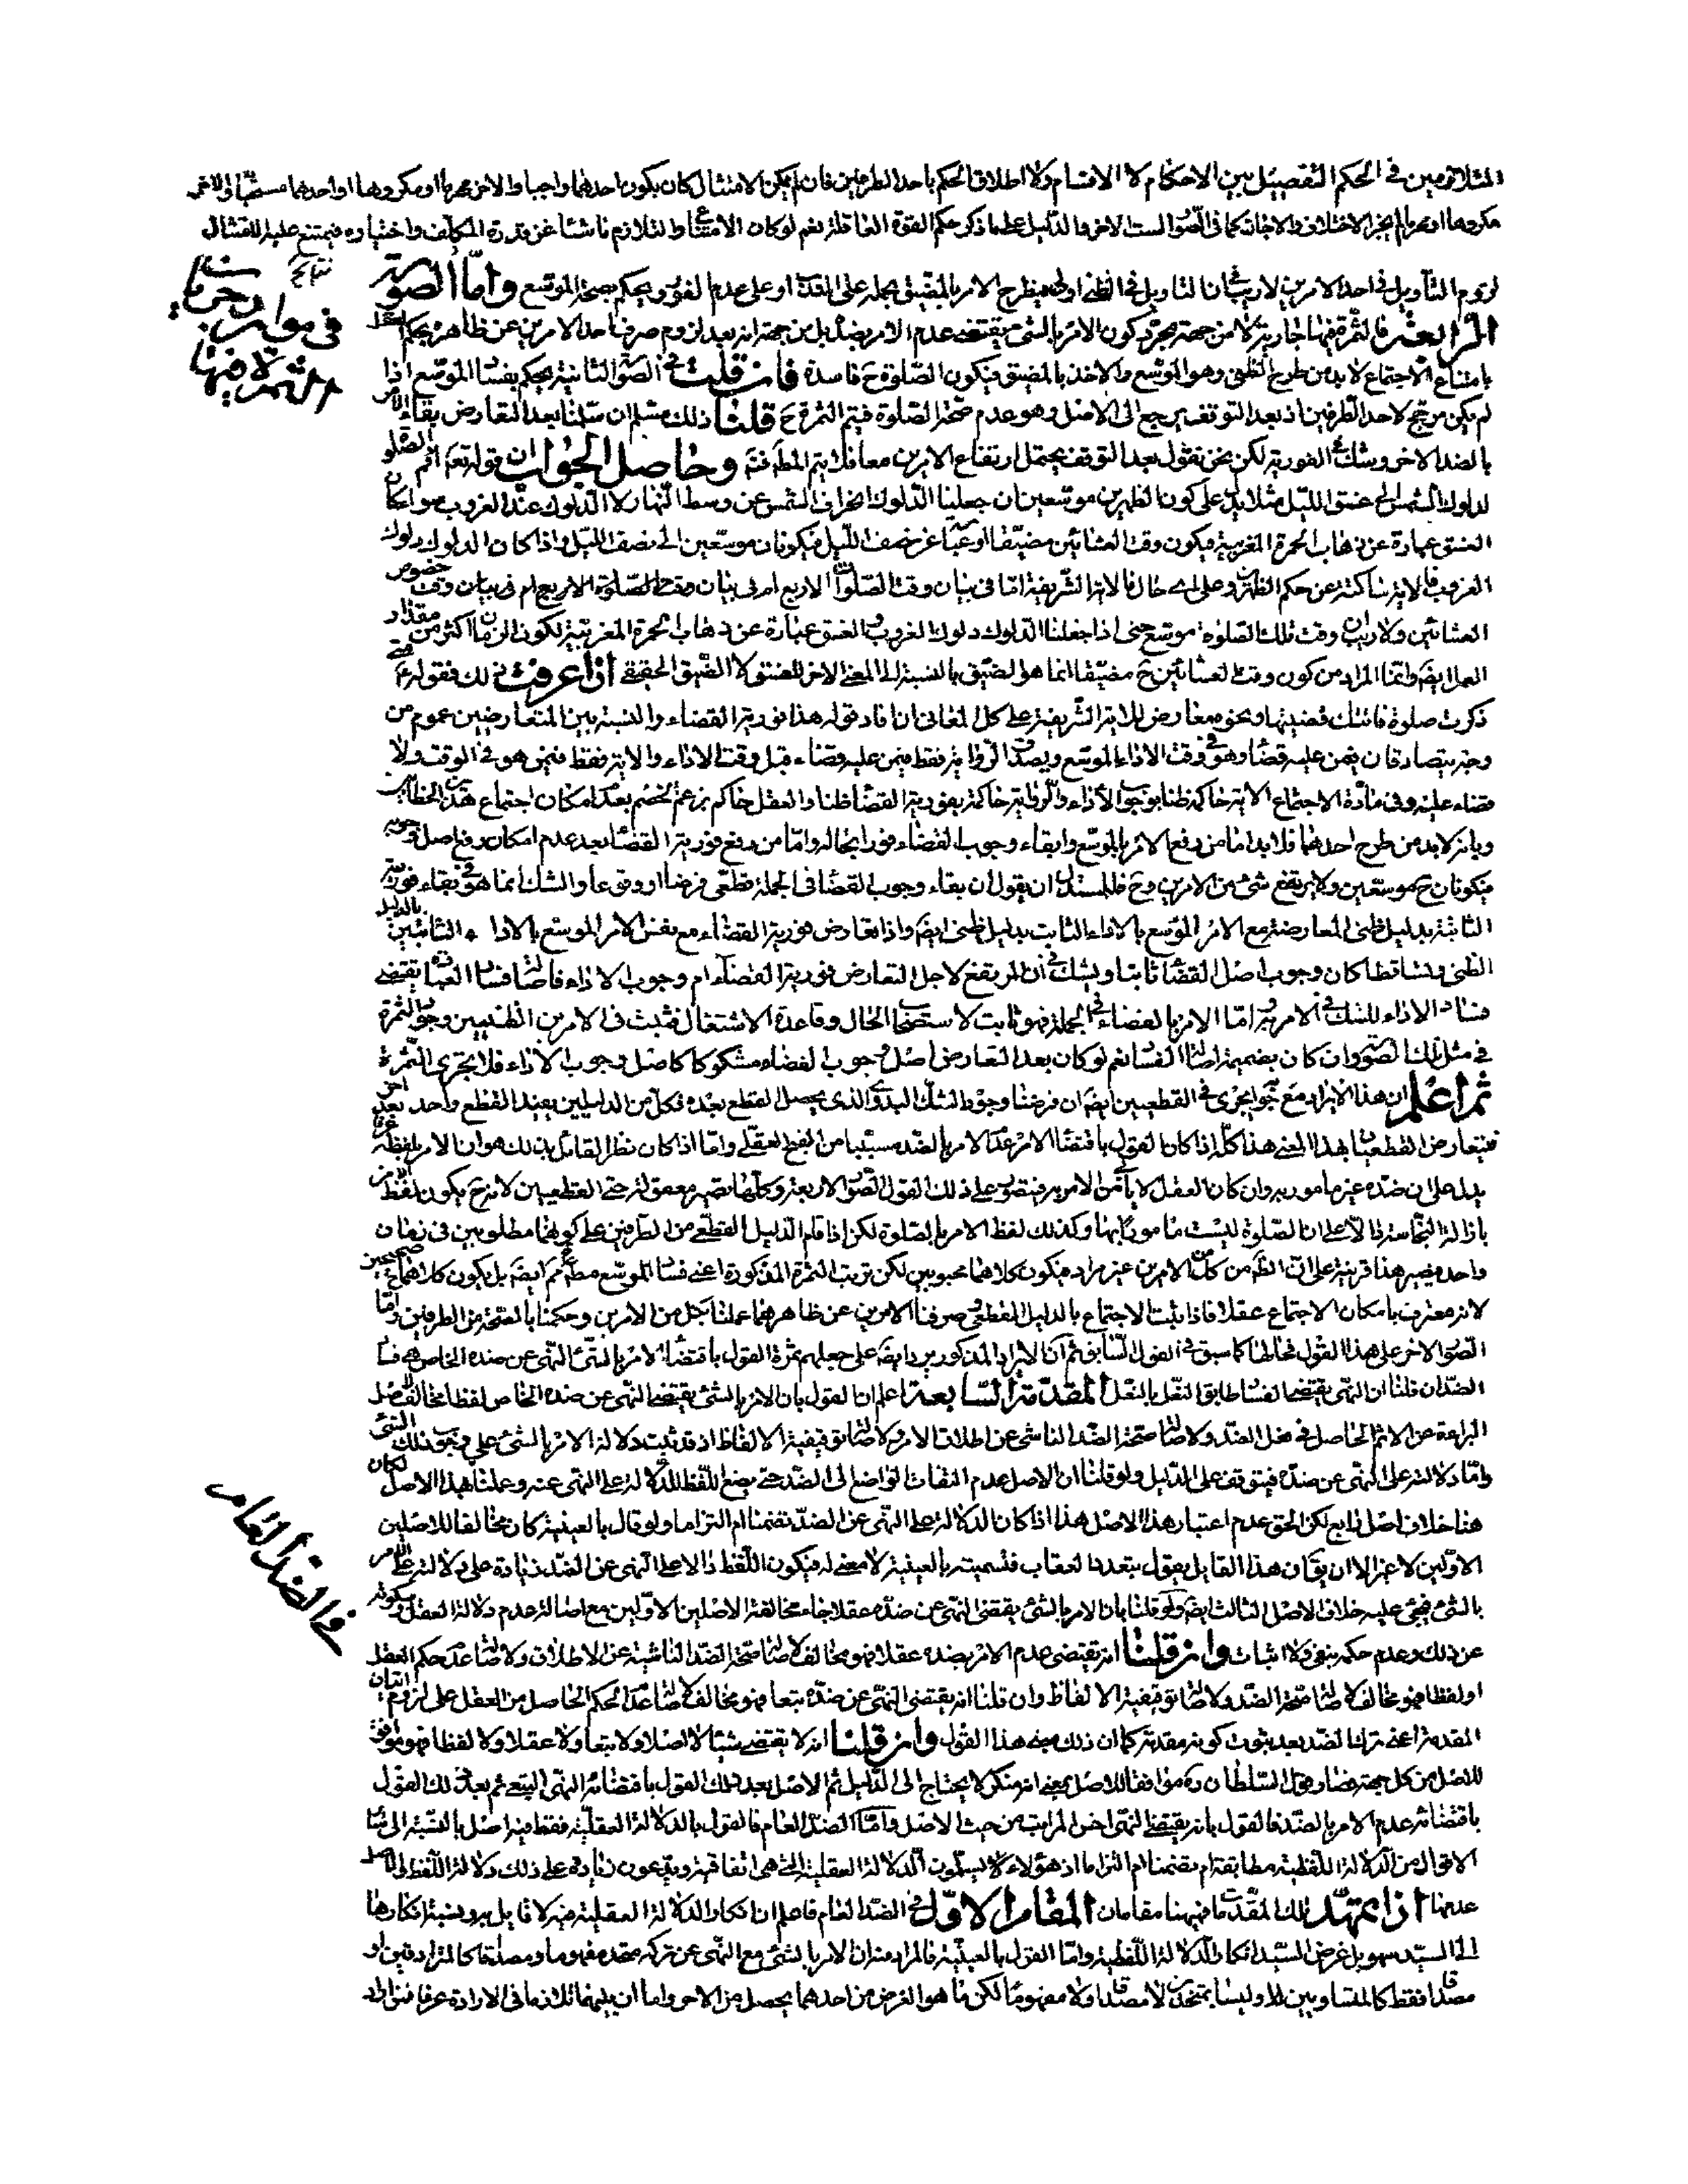 المتلازمين في الحكم التفصيل بين الاحكام لا الاقتسام ولا اطلاق الحكم باحد الطرفين فان لم يمكن الامتثال كان يكون احدهما واجبا والاخر محرما او مكروها او احدهما مستحبا والاخر
مكروها او محرما لم يجز الاختلاف والدليل على ما ذكر حكم القوة العاقلة نعم لو كان الامتناع والتلازم ناشئا عن قدرة المكلف واختياره فيمتنع عليه الامتثال
لزوم التأويل في احد الامرين لا ريب في ان التاويل في الظني اولى فيطرح الامر بالمضيق بحمله على الندب او على عدم الفور ويحكم بصحة الموسع واما الصورة
الرابعة فالثمرة فيها جارية لا من جهة مجرد كون الامر بالشيء يقتضي عدم الامر بضده بل من جهة انه بعد لزوم صرف احد الامرين عن ظاهره بحكم العقل
بامتناع الاجتماع لا بد من طرح الظني وهو الموسع والاخذ بالمضيق فيكون الصلوة ح فاسدة فان قلت في الصورة الثانية يحكم بفساد الموسع اذا
لم يكن مرجح لاحد الطرفين اذ بعد التوقف يرجع الى الاصل وهو عدم صحة الصلوة فيتم الثمرة ح قلنا ذلك مسلم ان سلمنا بعد التعارض بقاء الامر
بالضد الاخر وشك في الفورية لكن نحن نقول بعد التوقف يحتمل ارتفاع الامرين معا فلا يتم المط فتم وحاصل الجواب ان قوله تعه اقم الصلوة
لدلوك الشمس الى غسق الليل مثلا يدل على كون الظهرين موسعين ان جعلنا الدلوك انحراف الشمس عن وسط النهار لا الدلوك عند الغروب سواء كان
الغسق عبارة عن ذهاب الحمرة المغربية فيكون وقت العشائين مضيقا او عبارة عن نصف الليل فيكونان موسعين الى نصف الليل واذا كان الدلوك دلوك
الغروب فالاية ساكتة عن حكم الظهرين وعلى اي حال فالاية الشريفة اما في بيان وقت الصلوات الاربع ام في بيان وقت الصلوة الاربع ام في بيان وقت خصوص
العشائين ولا ريب ان وقت تلك الصلوة موسع حتى اذا جعلنا الدلوك دلوك الغروب والغسق عبارة عن ذهاب الحمرة المغربية لكون الزمان اكثر من مقدار
العمل ايضا وانما المراد من كون وقت العشائين ح مضيقا انما هو الضيق بالنسبة الى المعنى الاخر للغسق لا الضيق الحقيقي اذا عرفت ذلك فقوله ع متى
ذكرت صلوة فاتتك قضيتها ونحوه معارض للاية الشريفة على كل المعاني ان افاد قوله هذا فورية القضاء والنسبة بين المتعارضين عموم من
وجه يتصادقان فيمن عليه قضاء وهو في وقت الاداء الموسع ويصدق الرواية فقط فيمن عليه قضاء قبل وقت الاداء والاية فقط فيمن هو في الوقت ولا
قضاء عليه وفي مادة الاجتماع الاية حاكمة ظنا بوجوب الاداء والرواية حاكمة بفورية القضاء ظنا والعقل حاكم بزعم الخصم بعدم امكان اجتماع هذين الخطابين
وبانه لا بد من طرح احدهما فلا بد اما من رفع الامر بالموسع وابقاء وجوب القضاء فورا بحاله واما من رفع فورية القضاء بعد عدم امكان رفع اصل وجوبه
فيكونان ح موسعين ولا يرتفع شيء من الامرين وح فللمستدل ان يقول ان بقاء وجوب القضاء في الجملة قطعي فرضا او وقوعا والشك انما هو في بقاء فوريته
الثابتة بدليل ظني المعارضة مع الامر الموسع بالاداء الثابت بدليل ظني ايضا واذا تعارض فورية القضاء مع نفس الامر الموسع بالاداء الثابتين بالدليل
الظني وتساقطا كان وجوب اصل القضاء ثابتا ويشك في ان المرتفع لاجل التعارض فورية القضاء ام وجوب الاداء فاصالة فساد العبادة يقتضي
فساد الاداء للشك في الامر به اما الامر بالقضاء في الجملة فهو ثابت لاستصحاب الحال وقاعدة الاشتغال فثبت في الامرين الظنيين وجود الثمرة
في مثل تلك الصور وان كان بضميمة اصالة الفساد نعم لو كان بعد التعارض اصل وجوب القضاء مشكوكا كاصل وجوب الاداء فلا يجري الثمرة
ثم اعلم ان هذا الايراد مع جوابه يجري في القطعيين ايضا ان فرضنا وجود الشك البدوي الذي يحصل القطع بعده فكل من الدليلين يفيد القطع واحد بعد اخر
فيتعارض القطعيان بهذا المعنى هذا كله اذا كان القول باقتضاء الامر عدم الامر بالضد مسببا من القبح العقلي واما اذا كان نظر القائل بذلك هو ان الامر بلفظه عرفا
يدل على ان ضده غير مامور به وان كان العقل لا يأبى من الامر به فيتصور على ذلك القول الصور الاربعة وكلها تصير معقولة حتى القطعيين لانه ح يكون لفظ الامر
بازالة النجاسة دالا على ان الصلوة ليست مأمورا بها وكذلك لفظ الامر بالصلوة لكن اذا قام الدليل القطعي من الطرفين على كونهما مطلوبين في زمان
واحد فيصير هذا قرينة على ان الظاهر من كل من الامرين غير مراد فيكون كلاهما محبوبين لكن ترتب الثمرة المذكورة اعني فساد الموسع مطلقا مم ايضا بل يكون كلاهما صحيحين
لانه معترف بامكان الاجتماع عقلا فاذا ثبت الاجتماع بالدليل القطعي صرفنا الامرين عن ظاهرهما وعملنا بكل من الامرين وحكمنا بالصحة من الطرفين واما
الصور الاخر على هذا القول فحالها كما سبق في القول السابق ثم ان الايراد المذكور يرد ايضا على جعلهم ثمرة القول باقتضاء الامر بالشيء النهي عن ضده الخاص هي فساد
الضد ان قلنا ان النهي يقتضي الفساد طابق النعل بالنعل المقدمة السابعة اعلم ان القول بان الامر بالشيء يقتضي النهي عن ضده الخاص لفظا مخالف لاصل
البراءة عن الاثم الحاصل في فعل الضد ولاصالة صحة الضد الناشي عن اطلاق الامر ولاصالة توقيفية الالفاظ اذ قد ثبت دلالة الامر بالشيء على وجوب ذلك الشيء
واما دلالته على النهي عن ضده فيتوقف على الدليل ولو قلنا ان الاصل عدم التفات الواضع الى الضد حتى يضع اللفظ للدلالة على النهي عنه وعملنا بهذا الاصل لكان
هنا خلاف اصل رابع لكن الحق عدم اعتبار هذا الاصل هذا اذا كان الدلالة على النهي عن الضد تضمنا ام التزاما ولو قال بالعينية كان مخالفا للاصلين
الاولين لا غير الا ان يقال ان هذا القايل يقول بتعدد العقاب فتسميته بالعينية لا معنى له فيكون اللفظ دالا على النهي عن الضد زيادة على دلالته على الامر
بالشيء فيجيء عليه خلاف الاصل الثالث ايضا ولو قلنا بان الامر بالشيء يقتضي النهي عن ضده عقلا جاء مخالفة الاصلين الاولين مع اصالة عدم دلالة العقل وسكوته
عن ذلك وعدم حكمه بنفي ولا اثبات وان قلنا انه يقتضي عدم الامر بضده عقلا فهو مخالف لاصالة صحة الضد الناشئة عن الاطلاق ولاصالة عدم حكم العقل
او لفظا فهو مخالف لاصالة صحة الضد ولاصالة توقيفية الالفاظ وان قلنا انه يقتضي النهي عن ضده تبعا فهو مخالف لاصالة عدم الحكم الحاصل من العقل على لزوم اتيان
المقدمة اعني ترك الضد بعد ثبوت كونه مقدمة كما ان ذلك مبنى هذا القول وان قلنا انه لا يقتضي شيئا لا اصلا ولا تبعا ولا عقلا ولا لفظا فهو موافق
للاصل من كل جهة فصار قول السلطان ره موافقا للاصل بمعنى انه منكر لا يحتاج الى الدليل ثم الاصل بعد ذلك القول باقتضائه النهي التبعي ثم بعد ذلك القول
باقتضائه عدم الامر بالضد فالقول بانه يقتضي النهي اخر المراتب من حيث الاصل واما الضد العام فالقول بالدلالة العقلية فقط فيه اصل بالنسبة الى سائر
الاقوال من الدلالة اللفظية مطابقة ام تضمنا ام التزاما اذ هؤلاء لا يسلمون الدلالة العقلية التي هي اتفاقية ويدعون زيادة على ذلك دلالة اللفظ والاصل
عدمها اذا تمهد تلك المقدمات فههنا مقامان المقام الاول في الضد العام فاعلم ان انكار الدلالة العقلية فيه لا قايل به ونسبة انكارها
الى السيد سهو بل غرض السيد انكار الدلالة اللفظية واما القول بالعينية فالمراد منه ان الامر بالشيء مع النهي عن تركه متحد مفهوما ومصداقا كالمترادفين او
مصداقا فقط كالمتساويين او ليسا بمتحدين لا مصداقا ولا مفهوما لكن ما هو الغرض من احدهما يحصل من الاخر واما ان بينهما تلازما في الارادة عرفا فمتى اراد
في الضد العام